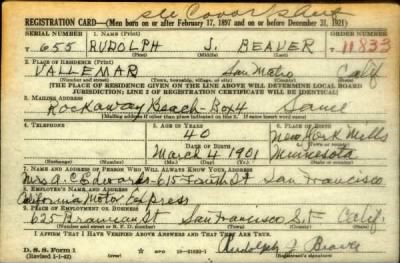 see Cover
REGISTRATION CARD—(Men born on or after February 17, 1897 and on or before December 31, 1921)
SERIAL NUMBER 1. NAME (Print) ORDER NUMBER
T 655 RUDOLPH J. BEAVER T 11833
(First) (Middle) (Last)
2. PLACE OF RESIDENCE (Print)
VALLEMAR San Mateo Calif
(Number and street) (Town, township, village, or city) (County) (State)
[THE PLACE OF RESIDENCE GIVEN ON THE LINE ABOVE WILL DETERMINE LOCAL BOARD
JURISDICTION; LINE 2 OF REGISTRATION CERTIFICATE WILL BE IDENTICAL]
3. MAILING ADDRESS
Rockaway Beach-Box4 Same
[Mailing address if other than place indicated on line 2. If same insert word same]
4. TELEPHONE 5. AGE IN YEARS 6. PLACE OF BIRTH
40 New York Mills
DATE OF BIRTH (Town or county)
March 4 1901 Minnesota
(Exchange) (Number) (Mo.) (Day) (Yr.) (State or country)
7. NAME AND ADDRESS OF PERSON WHO WILL ALWAYS KNOW YOUR ADDRESS
Mrs A. C. Edwards-615 Faith St San Francisco
8. EMPLOYER'S NAME AND ADDRESS
California Motor Express
9. PLACE OF EMPLOYMENT OR BUSINESS
625 Brannan St San Francisco S.F Calif.
(Number and street or R. F. D. number) (Town) (County) (State)
I AFFIRM THAT I HAVE VERIFIED ABOVE ANSWERS AND THAT THEY ARE TRUE.
D. S. S. Form 1
(Revised 1-1-42) (over)
Rudolph J Beaver